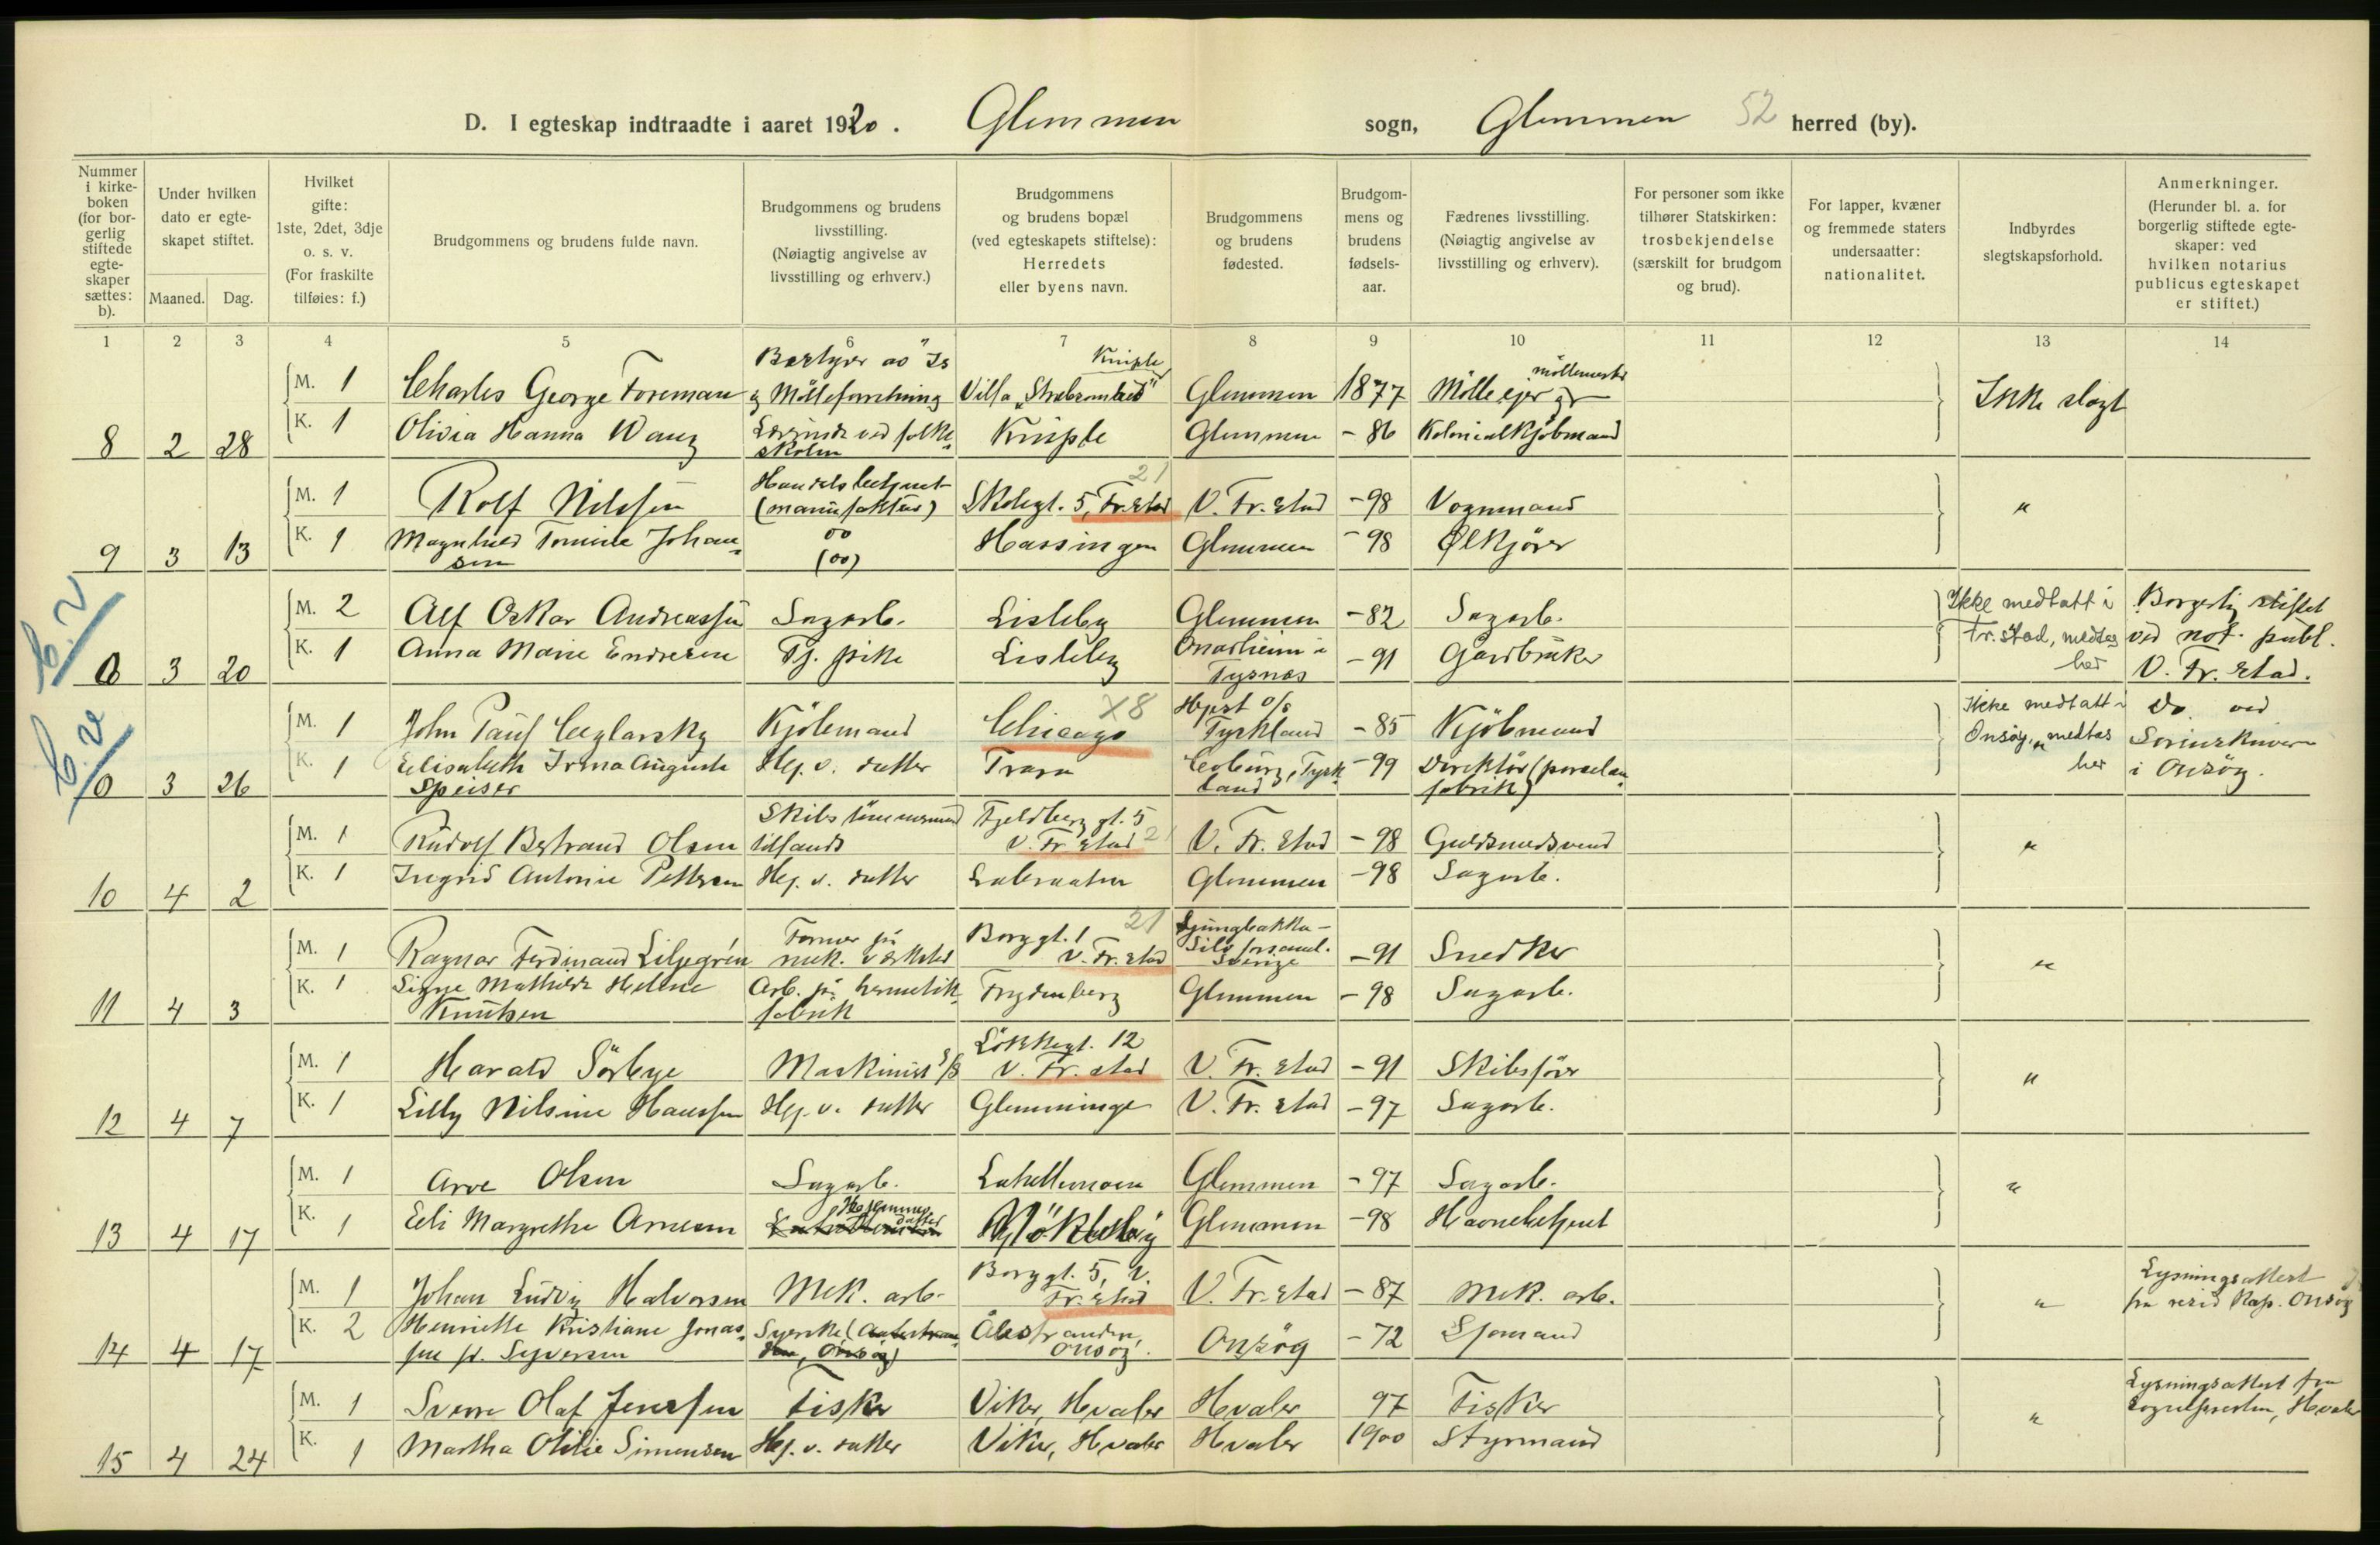 D. I egteskap indtraadte i aaret 1920. Glemmen sogn, Glemmen 52 herred (by).
Nummer i kirkeboken (for borgerlig stiftede egteskaper sættes: b).
Under hvilken dato er egteskapet stiftet.
Maaned. Dag.
Hvilket gifte: 1ste, 2det, 3dje o. s. v. (For fraskilte tilføies: f.)
Brudgommens og brudens fulde navn.
Brudgommens og brudens livsstilling. (Nøiagtig angivelse av livsstilling og erhverv.)
Brudgommens og brudens bopæl (ved egteskapets stiftelse): Herredets eller byens navn.
Brudgommens og brudens fødested.
Brudgommens og brudens fødselsaar.
Fædrenes livsstilling. (Nøiagtig angivelse av livsstilling og erhverv).
For personer som ikke tilhører Statskirken: trosbekjendelse (særskilt for brudgom og brud).
For lapper, kvæner og fremmede staters undersaatter: nationalitet.
Indbyrdes slegtskapsforhold.
Anmerkninger. (Herunder bl. a. for borgerlig stiftede egteskaper: ved hvilken notarius publicus egteskapet er stiftet.)
1 2 3 4 5 6 7 8 9 10 11 12 13 14
M. 1 Charles George Foreman Bestyrer av Is og Mølleforretning Villa Kniple Glemmen 1877 Mølleejer og møllemester Ikke slegt
8 2 28 K. 1 Olivia Hanna Wang Lærerinde ved folkeskolen Kniple Glemmen - 86 Kolonialkjøbmand
M. 1 Rolf Nilssen Handelsbetjent (manufaktur) Skolegt. 5, Fr.stad 21 V. Fr. stad - 98 Vognmand "
9 3 13 K. 1 Magnhild Tomine Johansen oo (oo) Hassingen Glemmen - 98 Ølkjører
M. 2 Alf Oskar Andreassen Sagarb. Lisleby Glemmen - 82 Sagarb. Ikke medtatt i Fr. stad, medtas her Borgerlig stiftet ved not. publ. V. Fr. stad.
0 3 20 K. 1 Anna Marie Endresen Tj. pike Lisleby Onarheim i Tysnæs - 91 Gaardbruker
M. 1 John Paul Ceglarsky Kjøbmand Chicago X8 Tyskland - 85 Kjøbmand Ikke medtatt i Onsøy, medtas her Do. ved Sorenskriveren i Onsøy.
0 3 26 K. 1 Elisabeth Irma Auguste Speiser Hj. v. datter Trara Coburg, Tyskland - 99 Direktør (porselænfabrik)
M. 1 Rudolf Bertrand Olsen Skibstømmermand tillands Fjeldberg gt. 5 V. Fr. stad 21 V. Fr. stad - 98 Guldsmedsvend "
10 4 2 K. 1 Ingrid Antonie Pettersen Hj. v. datter Glemmen - 98 Sagarb.
M. 1 Ragnar Ferdinand Liljegrén Former på mek. verksted Borggt. 1 V. Fr. stad 21 Sverige - 91 Snedker "
11 4 3 K. 1 Signe Mathilde Helene Knutsen Arb. på hermetikfabrik Frydenberg Glemmen - 98 Sagarb.
M. 1 Harald Sörbye Maskinist S/S Løkkegt. 12 V. Fr. stad V. Fr. stad - 91 Skibsfører "
12 4 7 K. 1 Lilly Nilsine Hanssen Hj. v. datter Glemminge V. Fr. stad - 97 Sagarb.
M. 1 Arve Olsen Sagarb. Labellemoen Glemmen - 97 Sagarb. "
13 4 17 K. 1 Elli Margrethe Arnesen Hjemmev. datter Glemmen - 98 Havnebetjent
M. 1 Johan Ludvig Halvorsen Mek. arb. Borggt. 5, V. Fr. stad V. Fr. stad - 87 Mek. arb. " Lysningsattest fra resid. kap. Onsøy
14 4 17 K. 2 Henriette Kristiane Jonassen f. Syversen Syerske Ålestranden, Onsøy. Onsøy - 72 Sjømand
M. 1 Sverre Olaf Jenssen Fisker Viker, Hvaler Hvaler 97 Fisker " Lysningsattest fra sognepresten, Hvaler
15 4 24 K. 1 Martha Otilie Simensen Hj. v. datter Viker, Hvaler Hvaler 1900 Styrmand